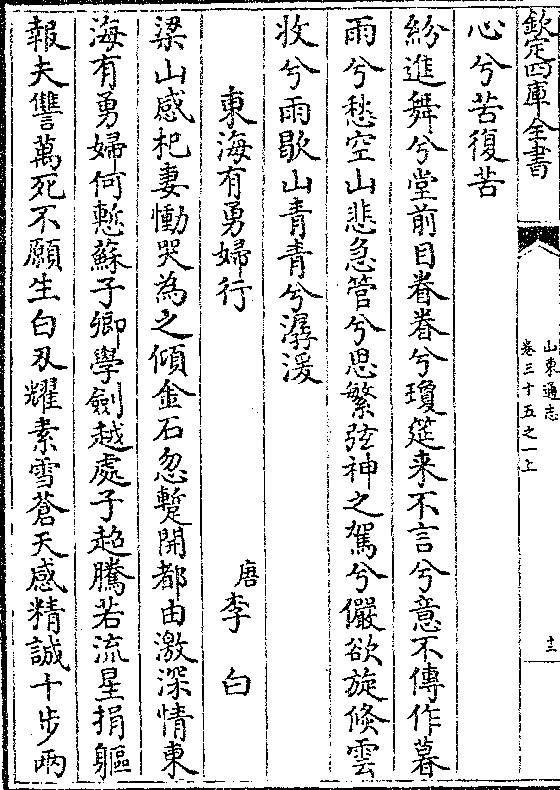 欽定四庫全書
山東通志
卷三十五之一上
十三
心兮苦復苦
紛進舞兮堂前目眷眷兮瓊筵来不言兮意不傳作暮
雨兮愁空山悲急管兮思繁弦神之駕兮儼欲旋倐雲
收兮雨歇山青青兮潺湲
東海有勇婦行
唐李白
梁山感杞妻慟哭為之傾金石忽蹔開都由激深情東
海有勇婦何慙蘇子卿學劍越處子超騰若流星捐軀
報夫讐萬死不願生白刄耀素雪蒼天感精誠十步兩